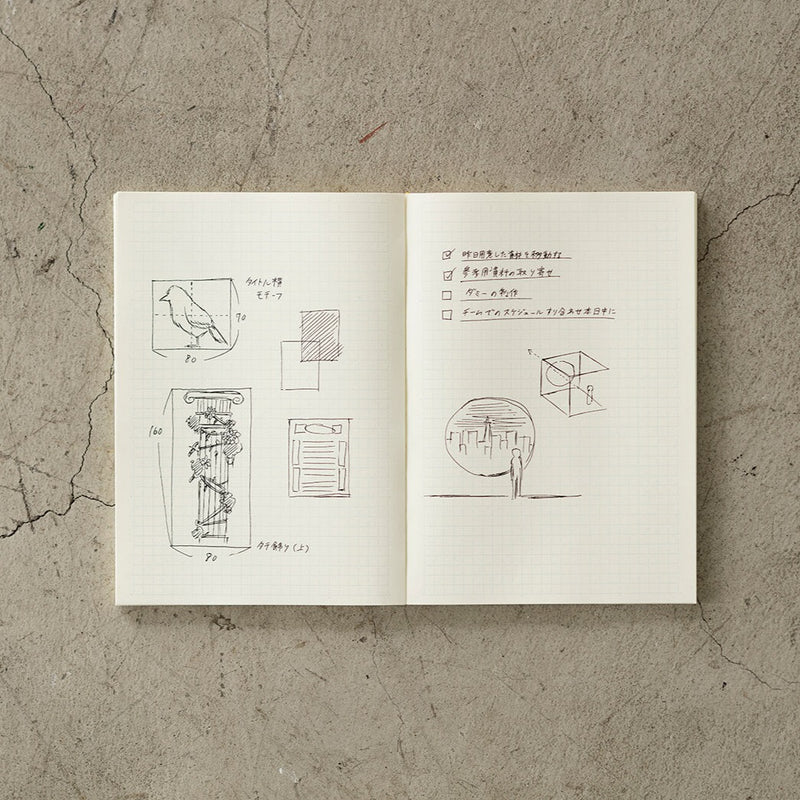 タイトル横
モチーフ
90
80
160
80
タテ飾り(上)
昨日用意した資材を移動する
参考用資料の取り寄せ
ダミーの制作
チームでのスケジュールすり合わせ本日中に